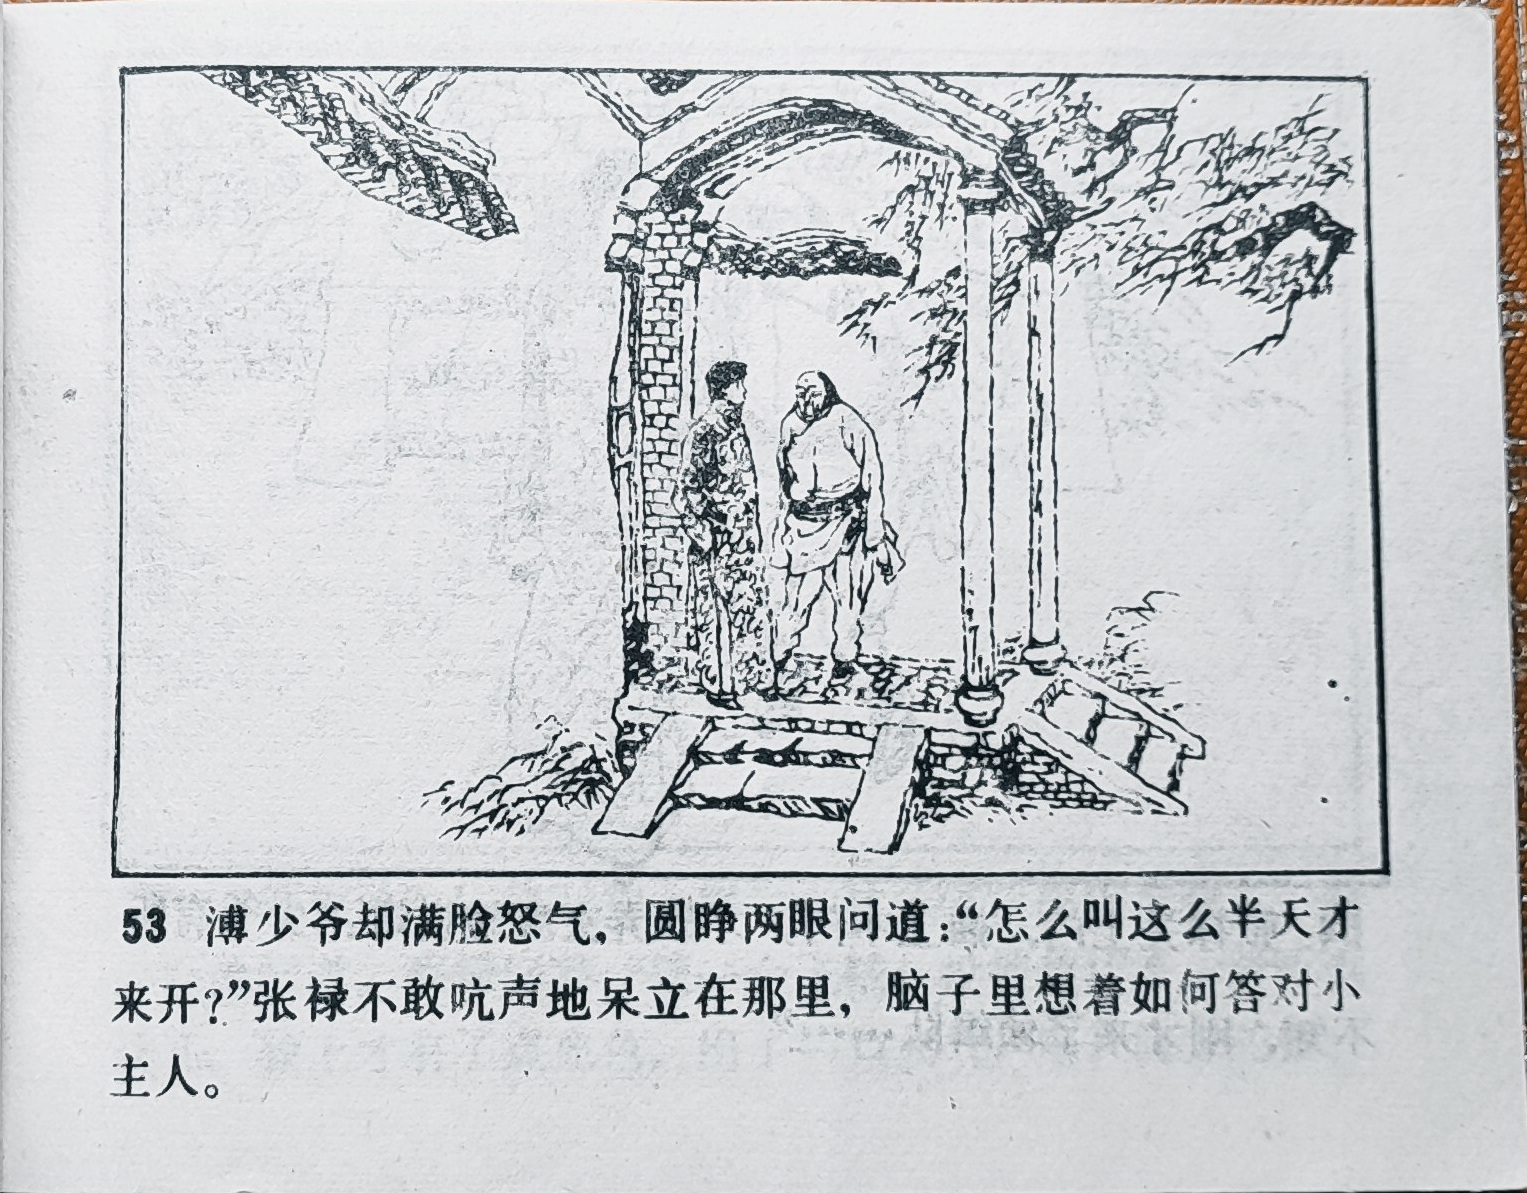 53 溥少爷却满脸怒气，圆睁两眼问道：“怎么叫这么半天才
来开？”张禄不敢吭声地呆立在那里，脑子里想着如何答对小
主人。